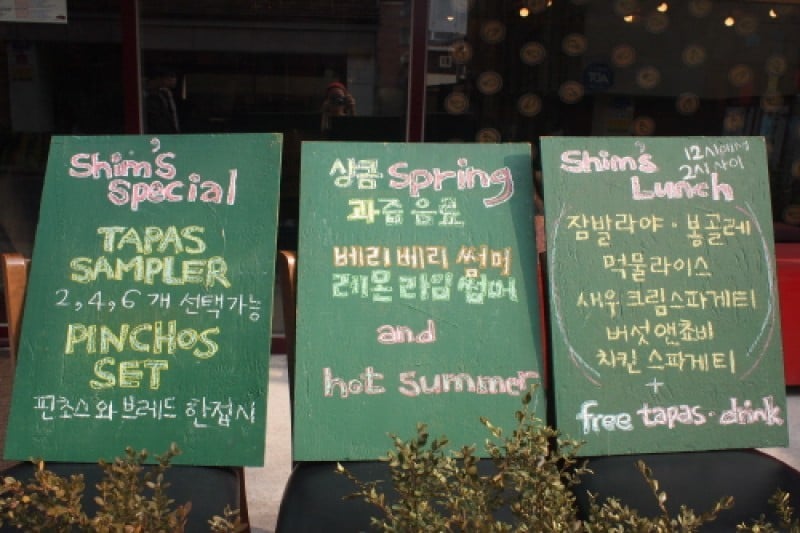 Shim's
Special
TAPAS
SAMPLER
2, 4, 6 개 선택가능
PINCHOS
SET
핀초스 와 브레드 한접시
상콤 Spring
과즙음료
베리베리 썸머
레몬라임 썸머
and
hot summer
Shim's
Lunch
12시에서
2시 사이
잠발라야 · 봉골레
먹물라이스
새우 크림스파게티
버섯 앤쵸비
치킨 스파게티
+
free tapas · drink